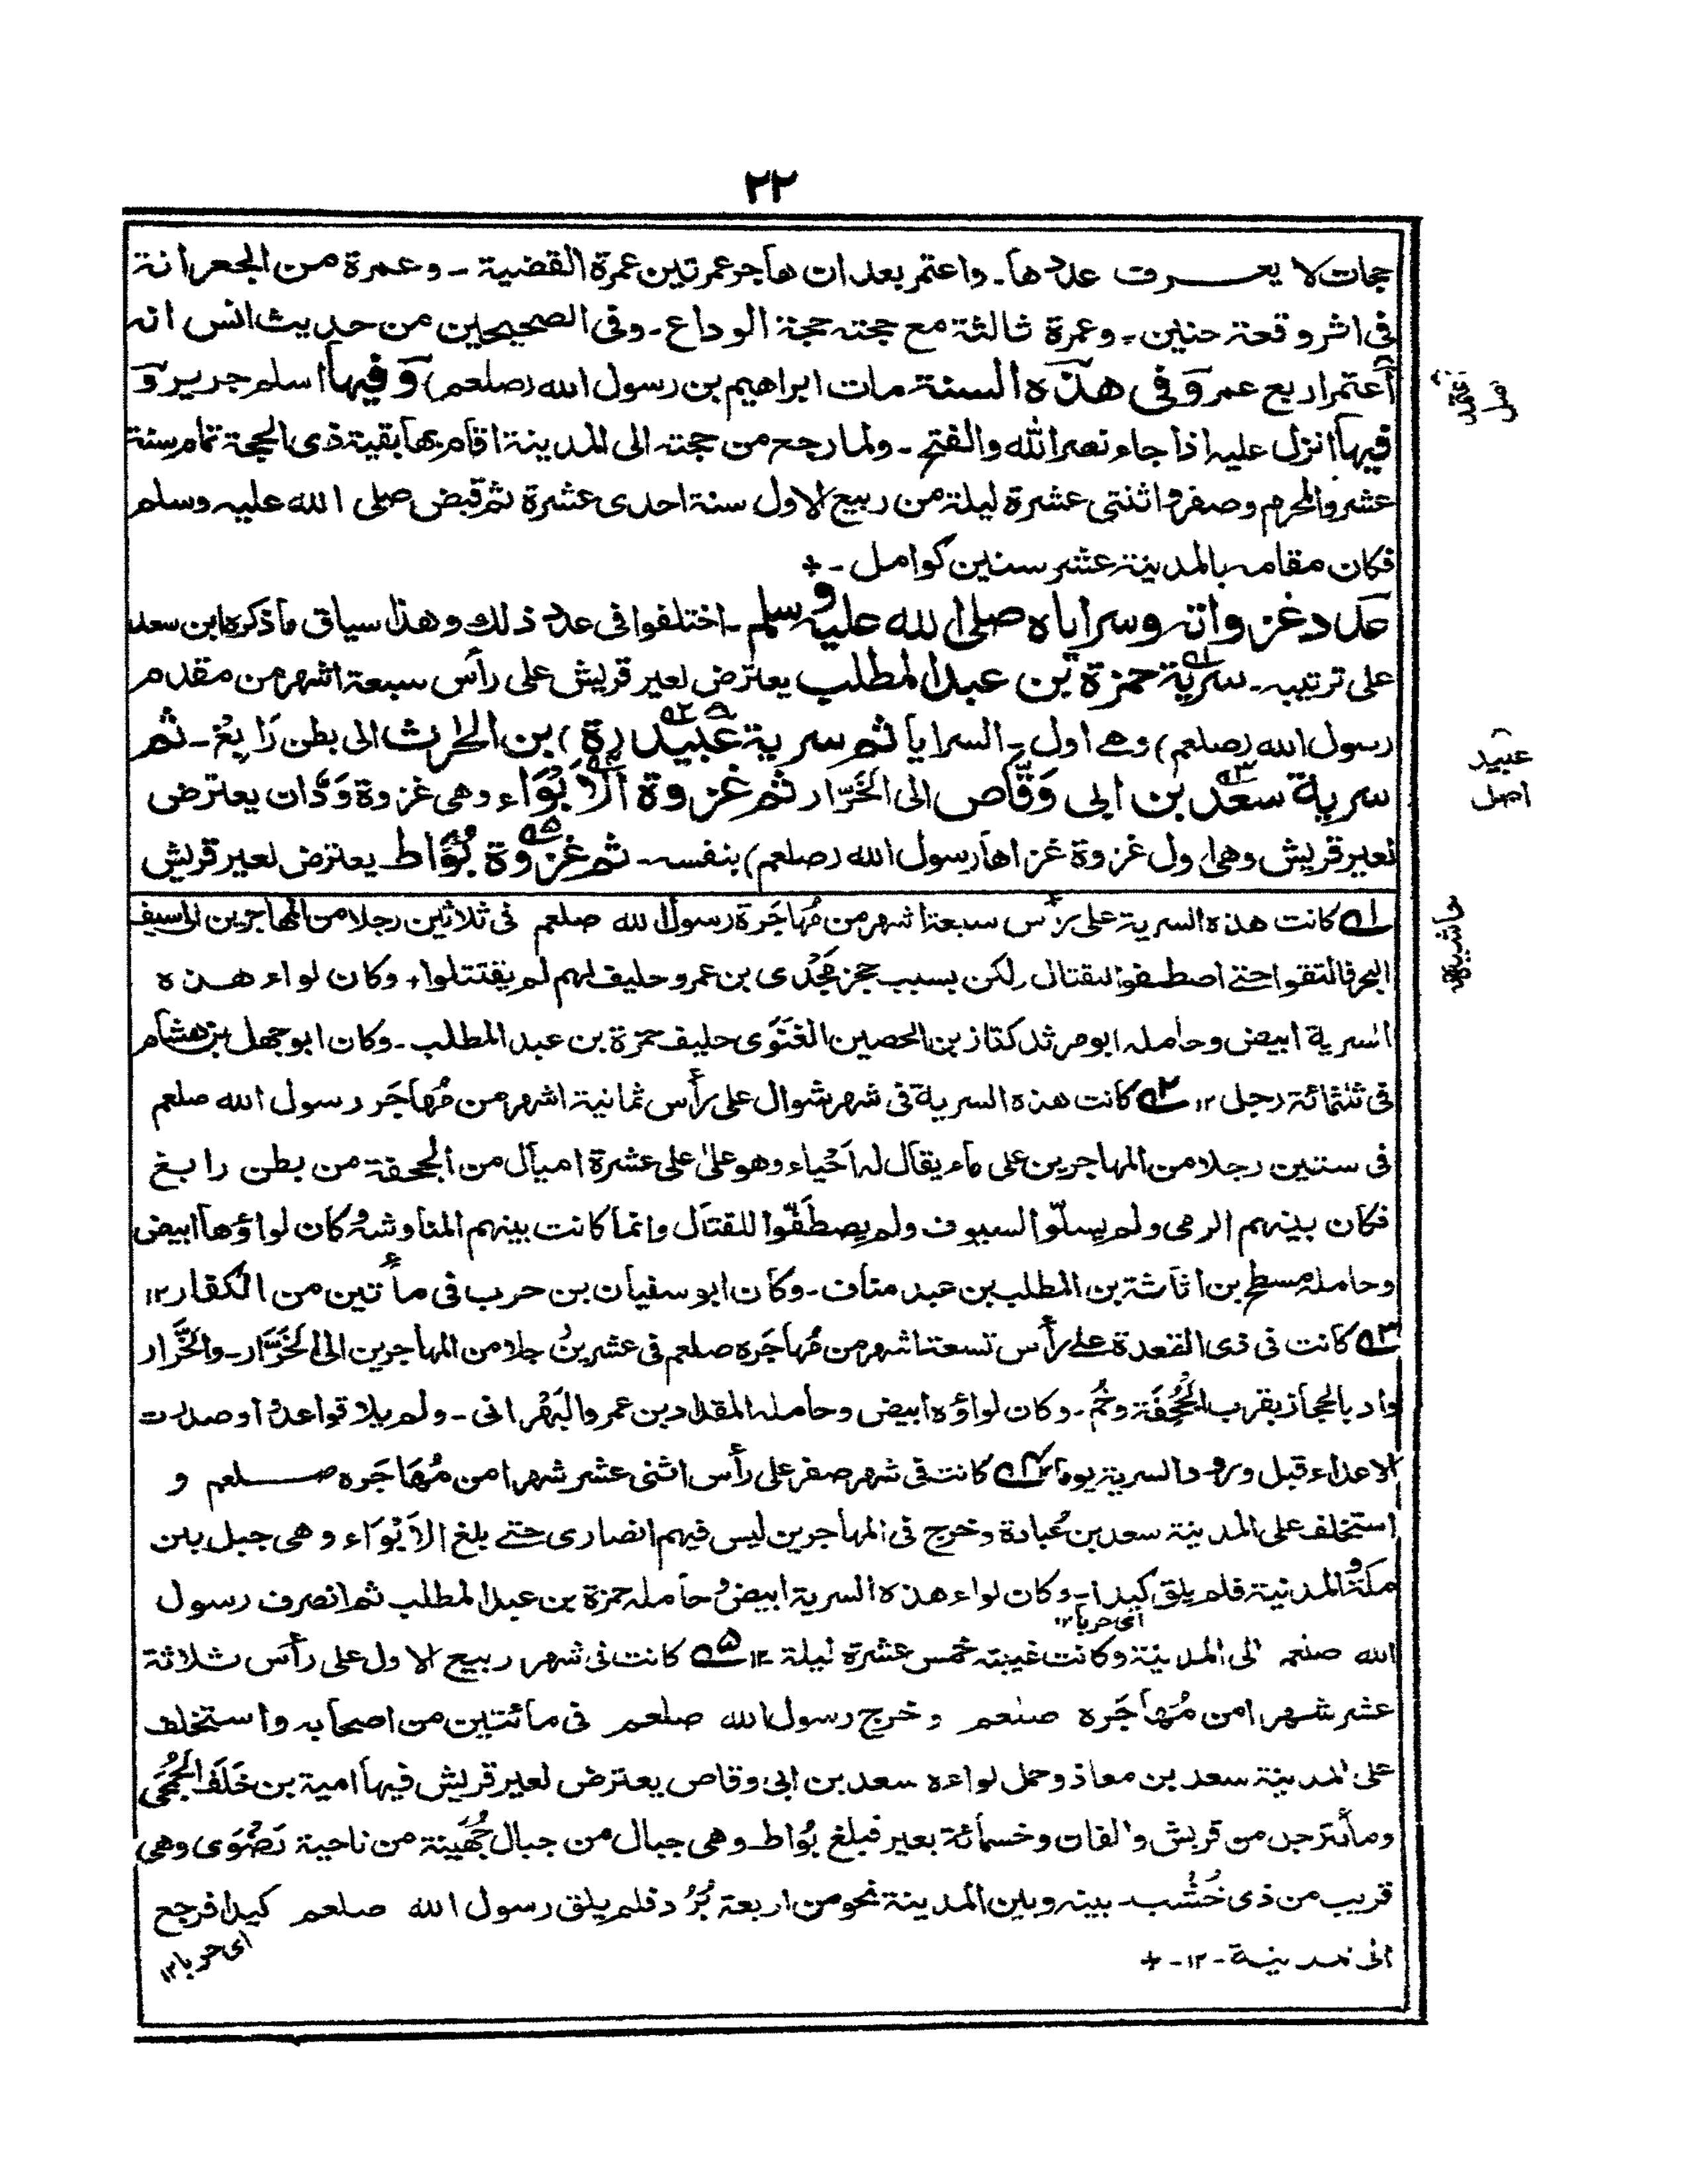 ٢٢
حجات لا يعرف عددها ـ واعتمر بعد ان هاجر عمرتين عمرة القضية ـ وعمرة من الجعرانة
فى اثر وقعة حنين ـ وعمرة ثالثة مع حجته حجة الوداع ـ وفى الصحيحين من حديث انس انه
أعتمر اربع عمر وَفى هذه السنة مات ابراهيم بن رسول الله (صلعم) وَفيها اسلم جرير وَ
فيها انزل عليه اذا جاء نصر الله والفتح ـ ولما رجع من حجته الى المدينة اقام بها بقية ذى الحجة تمام سنة
عشر والمحرم وصفر واثنتى عشرة ليلة من ربيع الاول سنة احدى عشرة ثم قبض صلى الله عليه وسلم
فكان مقامه بالمدينة عشر سنين كوامل ـ +
عدد غزواته وسراياه صلى الله عليه وسلم ـ اختلفوا فى عدد ذلك وهذا سياق ما ذكره ابن سعد
على ترتيبه ـ سرية حمزة بن عبد المطلب يعترض لعير قريش على رأس سبعة اشهر من مقدم
رسول الله (صلعم) وهے اول ـ السرايا ثم سرية عبيد (ة) بن الحارث الى بطن رَابغ ـ ثم
سرية سعد بن ابى وَقّاص الى الخَرّار ثم غزوة الاَبْوَاء وهى غزوة وَدَّان يعترض
لعير قريش وهى اول غزوة غزاها رسول الله (صلعم) بنفسه ـ ثم غزوة بُوَاط يعترض لعير قريش
عبيد
اصل
حاشية
١ـه كانت هذه السرية على رأس سبعة اشهر من مُهَاجَرة رسول الله صلعم فى ثلاثين رجلا من المهاجرين الى سيف
البحر فالتقوا حتے اصطفوا للقتال لكن بسبب حجز مَجْدى بن عمرو حليف لهم لم يقتتلوا، وكان لواء هذه
السرية ابيض وحامله ابو مرثد كناز بن الحصين الغَنَوَى حليف حمزة بن عبد المطلب ـ وكان ابو جهل بن هشام
فى ثلثمائة رجل ١٢ ٢ـه كانت هذه السرية فى شهر شوال على رأس ثمانية اشهر من مُهَاجَر رسول الله صلعم
فى ستين رجلا من المهاجرين على ماء يقال له اَحْياء وهو على على عشرة اميال من الجحفة من بطن رابغ
فكان بينهم الرمى ولم يسلّوا السيوف ولم يصطَفّوا للقتال وانما كانت بينهم المناوشة وكان لواؤها ابيض
وحامله مسطح بن اثاثة بن المطلب بن عبد مناف ـ وكان ابو سفيان بن حرب فى مأتين من الكفار ١٢
٣ـه كانت فى ذى القعدة علے رأس تسعة اشهر من مُهَاجَره صلعم فى عشرين رجلا من المهاجرين الى الخَرَّار ـ والخَرَّار
واد بالحجاز بقرب الجُحْفَة وخُمّ ـ وكان لواؤه ابيض وحامله المقداد بن عمرو البَهْرانى ـ ولم يلاقوا عدوا وصدرت
الاعداء قبل ورود السرية يوما ٤ـه كانت فى شهر صفر على رأس اثنى عشر شهرا من مُهَاجَره صلعم و
استخلف على المدينة سعد بن عُبادة وخرج فى المهاجرين ليس فيهم انصارى حتے بلغ الاَبْوَاء وهى جبل بين
مكة والمدينة فلم يلق كيدا ـ وكان لواء هذه السرية ابيض وحامله حمزة بن عبد المطلب ثم انصرف رسول
اى حربا ١٢
الله صلعم الى المدينة وكانت غيبته خمس عشرة ليلة ١٢ ٥ـه كانت فى شهر ربيع الاول على رأس ثلاثة
عشر شهرا من مُهَاجَره صلعم وخرج رسول الله صلعم فى مائتين من اصحابه واستخلف
على المدينة سعد بن معاذ وحمل لواءه سعد بن ابى وقاص يعترض لعير قريش فيها امية بن خَلَف الجُمَحى
ومأة رجل من قريش والفان وخسمائة بعير فبلغ بُوَاط ـ وهى جبال من جبال جُهَينة من ناحية رَضْوَى وهى
قريب من ذى خُشُب ـ بينه وبين المدينة نحو من اربعة بُرُد فلم يلق رسول الله صلعم كيدا فرجع
الى المدينة ـ ١٢ ـ +
اى حربا ١٢